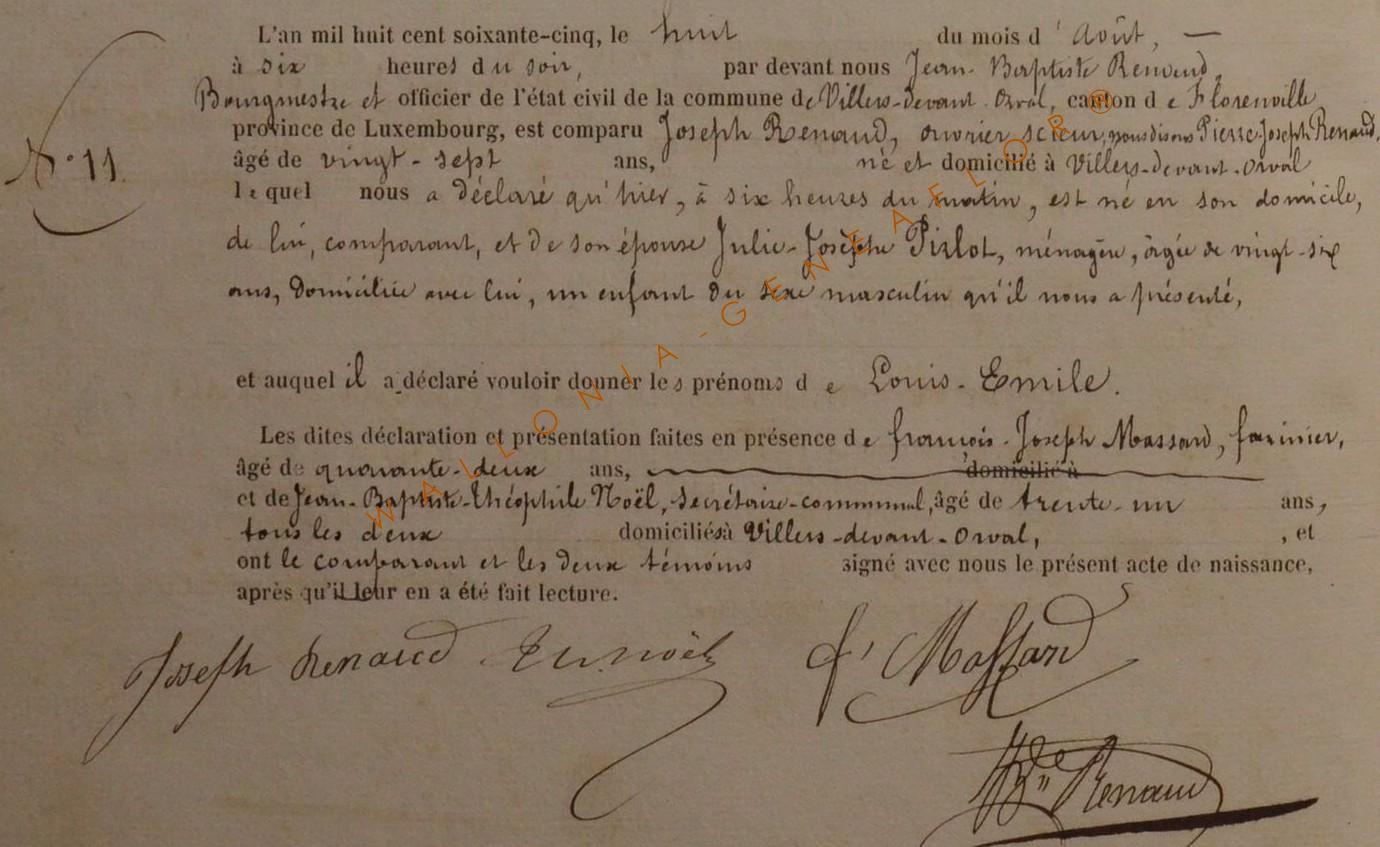 L'an mil huit cent soixante-cinq, le huit du mois d'Août, —
à six heures du soir, par devant nous Jean-Baptiste Renaud,
Bourgmestre et officier de l'état civil de la commune de Villers-devant-Orval, canton de Florenville
province de Luxembourg, est comparu Joseph Renaud, ouvrier scieur, nous disons Pierre-Joseph Renaud,
N° 11.
âgé de vingt-sept ans, né et domicilié à Villers-devant-Orval
lequel nous a déclaré qu'hier, à six heures du matin, est né en son domicile,
de lui, comparant, et de son épouse Julie-Josèphe Pirlot, ménagère, âgée de vingt-six
ans, domiciliée avec lui, un enfant du sexe masculin qu'il nous a présenté,
et auquel il a déclaré vouloir donner les prénoms de Louis-Emile.
Les dites déclaration et présentation faites en présence de françois-Joseph Massard, farinier,
âgé de quarante-deux ans, domicilié à
et de Jean-Baptiste-Théophile Noël, secrétaire-communal, âgé de trente-un ans,
tous les deux domiciliés à Villers-devant-Orval, , et
ont le comparant et les deux témoins signé avec nous le présent acte de naissance,
après qu'il leur en a été fait lecture.
Joseph Renaud noël f' Massard
Renaud
WALLONIA-GENEAFLOR®